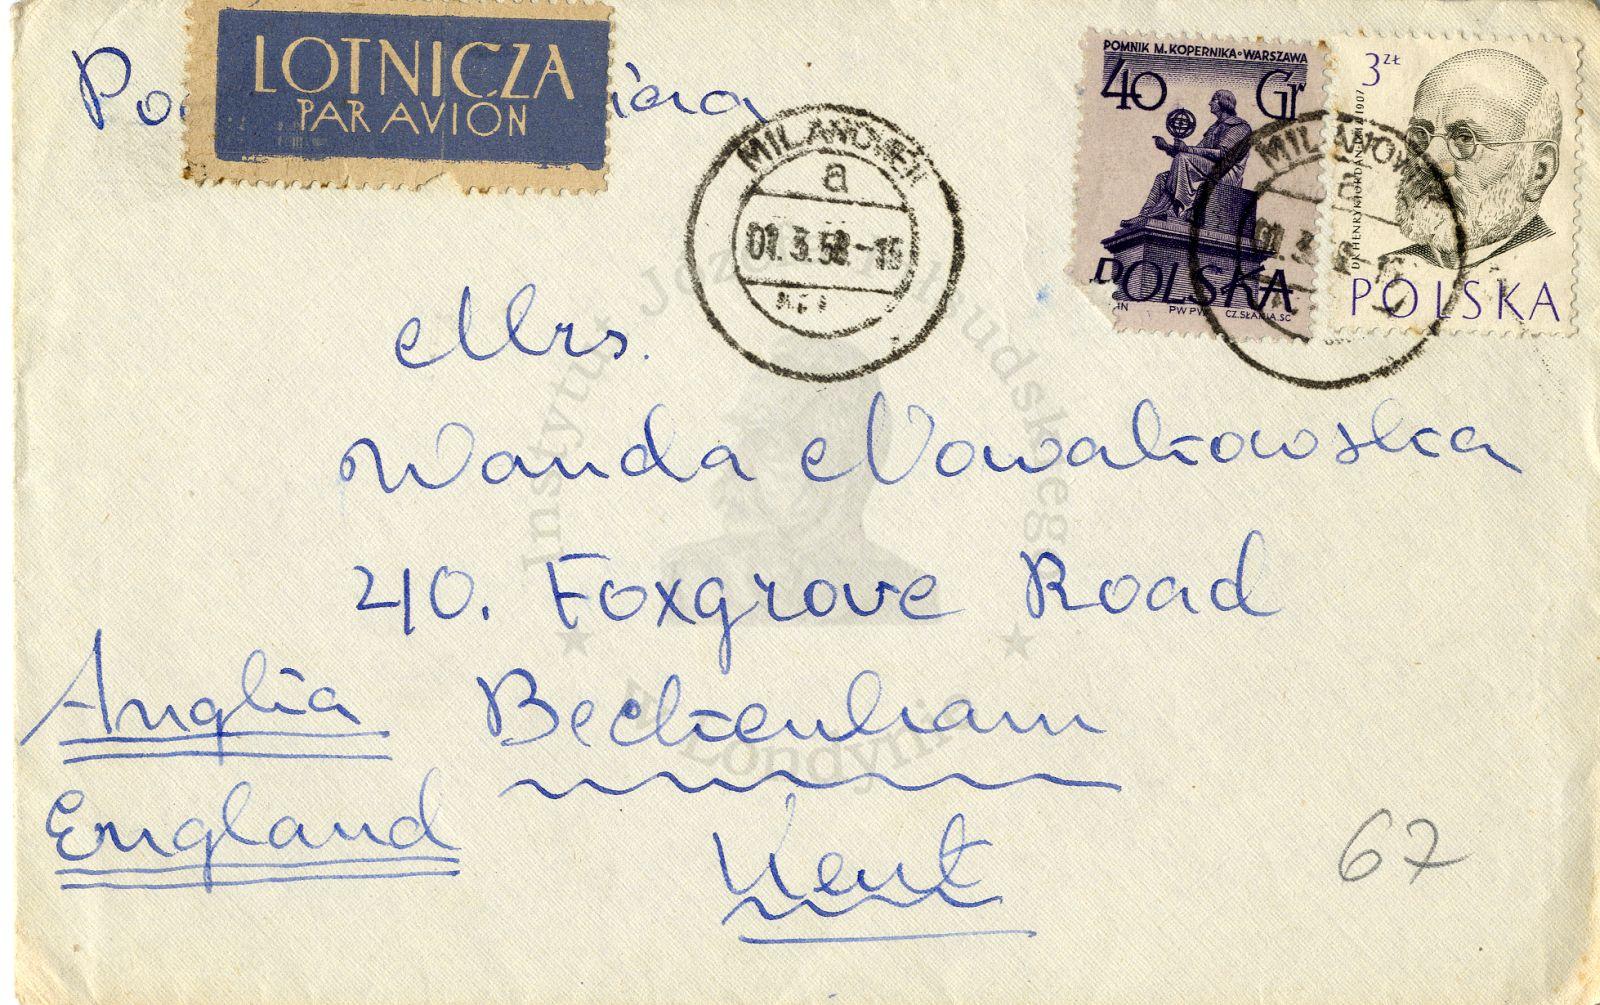 LOTNICZA
PAR AVION
MILANÓWEK
a
01.3.58.-15
POMNIK M. KOPERNIKA•WARSZAWA
40 Gr
POLSKA
PWPW CZ.SŁANIA.SC
3 ZŁ
POLSKA
Mrs.
Wanda Nowakowska
40. Foxgrove Road
Anglia Beckenham
England
Kent
67
Instytut Józefa Piłsudskiego
w Londynie